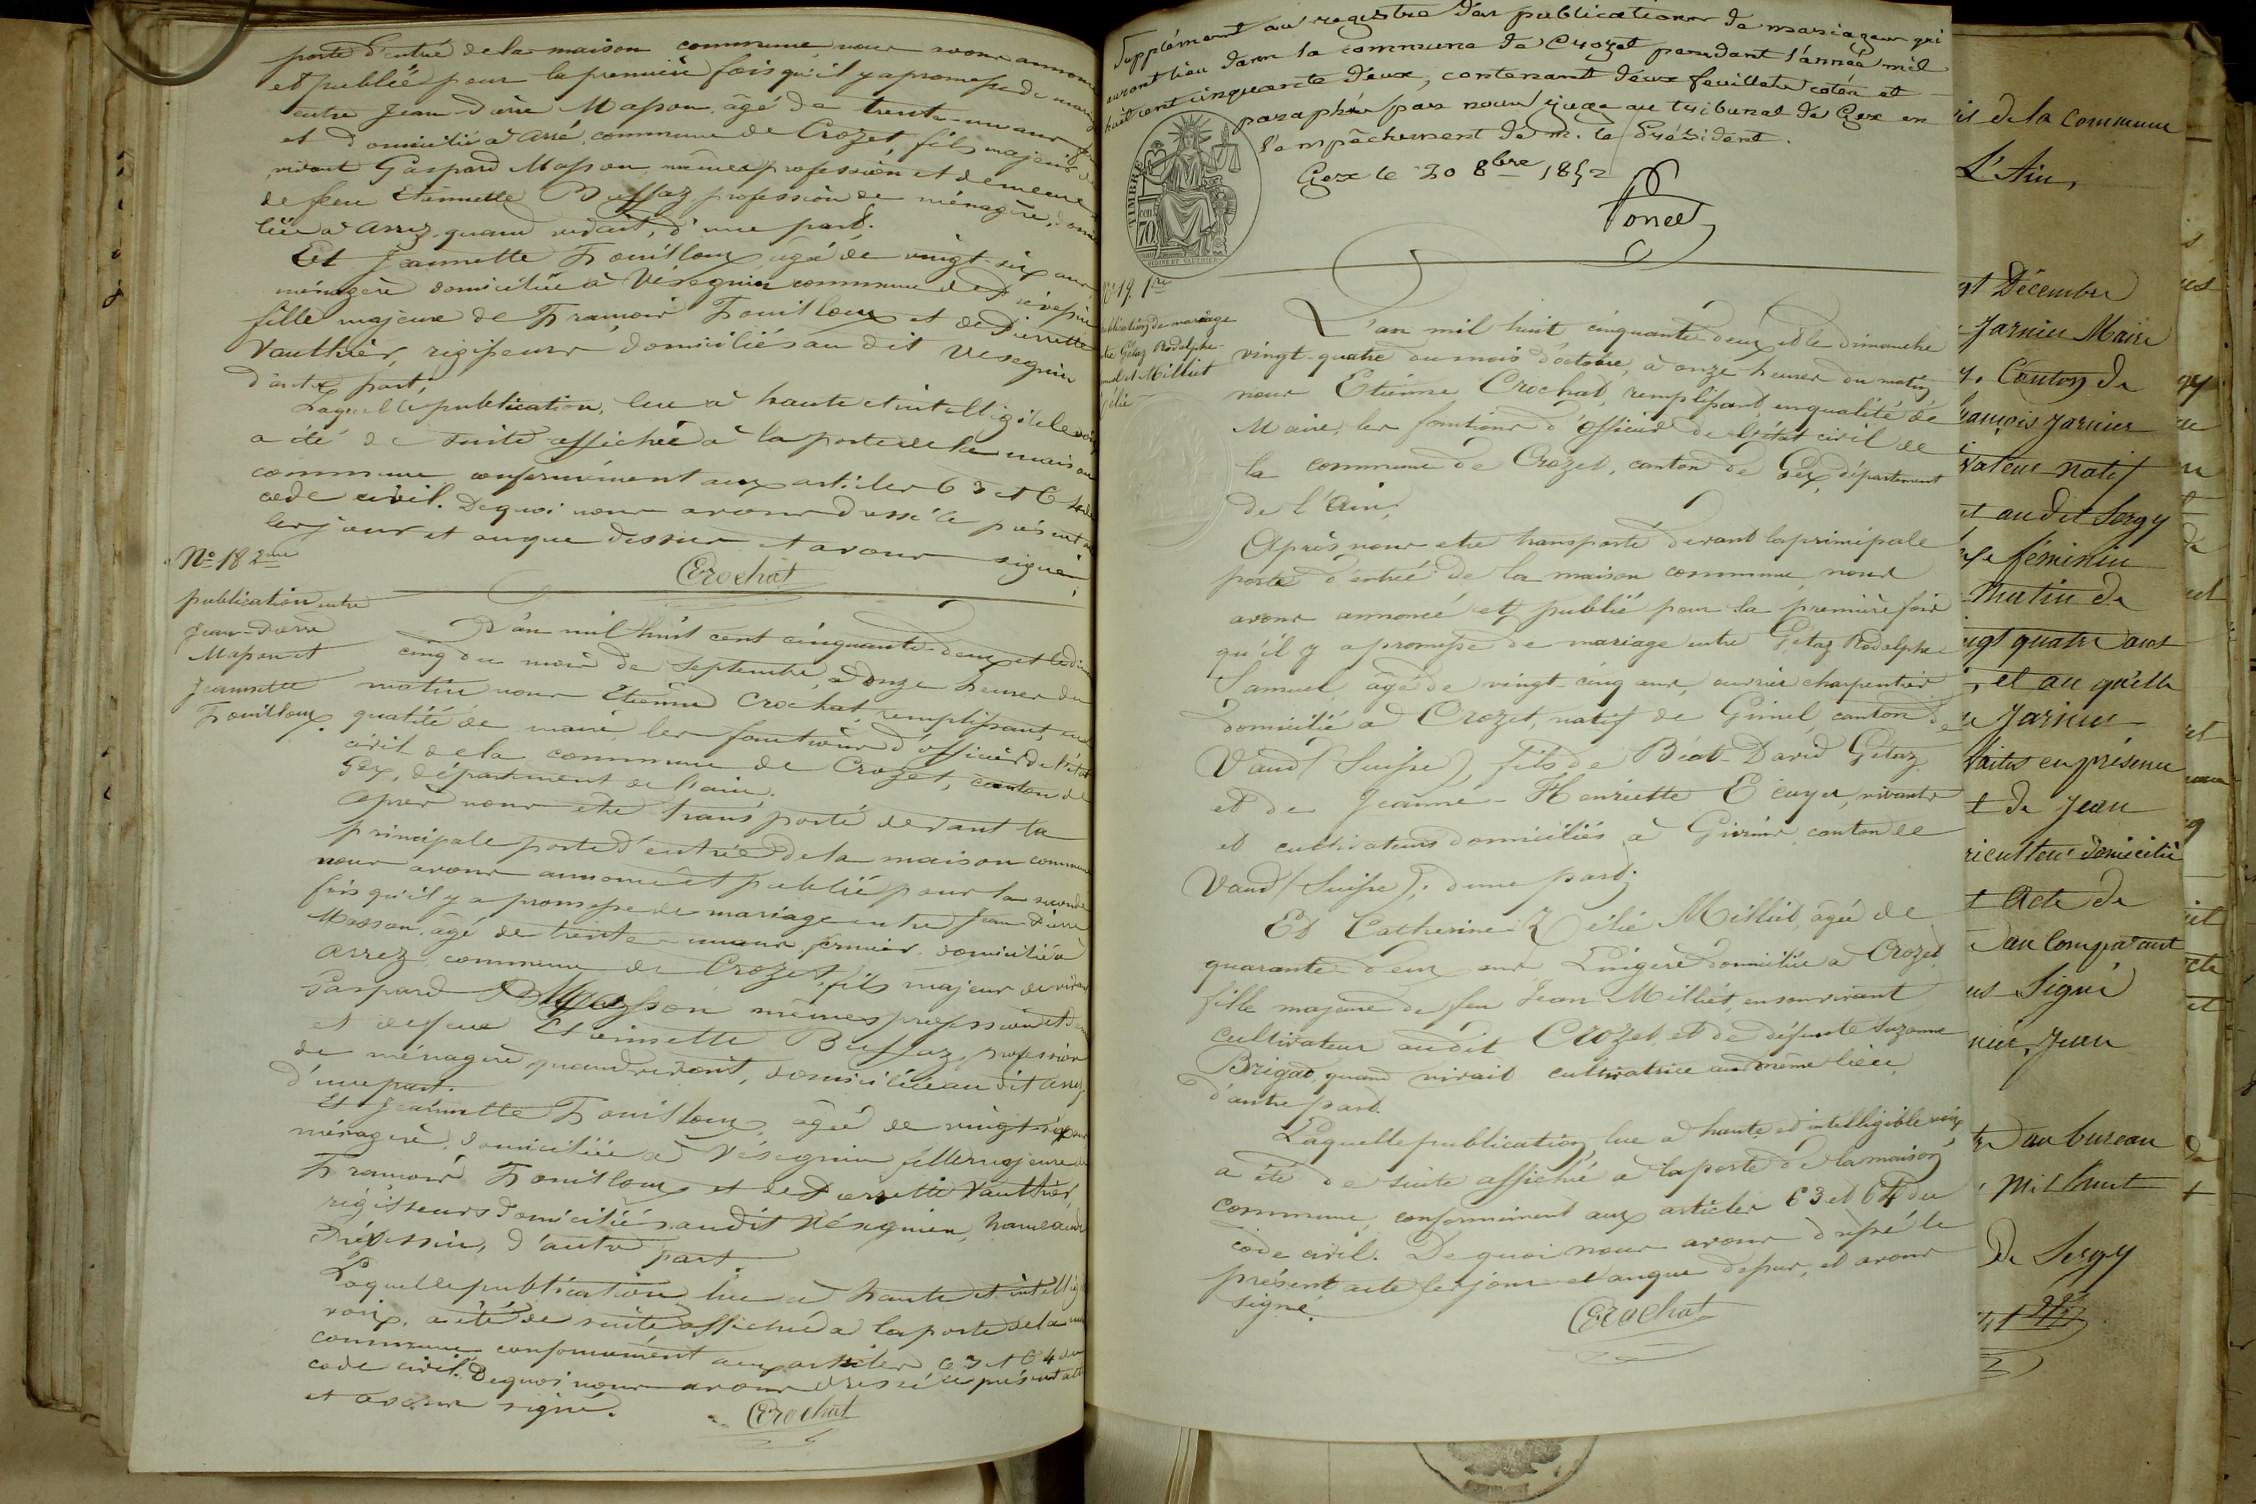 porte d'entrée de la maison commune nous avons annoncé
et publié pour la première fois qu'il y a promesse de
entre Jean-Pierre Masson, âgé de trente-un ans
et domicilié à Arré, commune de Crozet, fils majeur de
vivant Gaspard Masson, même profession et demeure
de feue Etiennette Buffaz, profession de ménagère,
liée à Arrez, quand vivait, d'une part.
Et Jeannette Fouilloux, âgée de vingt-six ans,
ménagère domiciliée à Vésegnin commune de Prévessin
fille majeure de François Fouilloux et de Pierrette
Vauthier, régisseurs domiciliés au dit Vésegnin
d'autre part;
Laquelle publication, lue à haute et intelligible voix
a été de suite affichée à la porte de la maison
commune conformément aux articles 63 et 64 du
code civil. De quoi nous avons dressé le présent
les jour et an que dessus et avons signé.
Crochat
No 18 2me
publication entre
Jean-Pierre
Masson et
Jeannette
Fouilloux.
L'an mil huit cent cinquante-deux et le
cinq du mois de Septembre, à onze heures du
matin nous Etienne Crochat, remplissant en
qualité de maire, les fonctions d'officier de l'état
civil de la commune de Crozet, canton de
Gex, département de l'ain.
Après nous être transporté devant la
principale porte d'entrée de la maison commune
nous avons annoncé et publié pour la seconde
fois qu'il y a promesse de mariage entre Jean-Pierre
Masson, âgé de trente-un ans, fermier, domicilié à
Arrez commune de Crozet, fils majeur de vivant
Gaspard Masson mêmes profession et
et de feue Etiennette Buffaz, profession
de ménagère quand vivait, domiciliée au dit Arrez
d'une part.
Et Jeannette Fouilloux, âgée de vingt-six ans
ménagère, domiciliée à Vésegnin fille majeure de
François Fouilloux et de Pierrette Vauthier,
régisseurs domiciliés audit Vésegnin, hameau de
Prévessin, d'autre part.
Laquelle publication lue à haute et intelligible
voix, a été de suite affichée à la porte de la
commune conformément aux articles 63 et 64 du
code civil. De quoi nous avons dressé le présent acte
et avons signé.
Crochat
Supplément au registre des publications de mariages qui
auront lieu dans la commune de Crozet pendant l'année mil
huit cent cinquante deux, contenant deux feuillets cotés et
paraphés par nous juge au tribunal de Gex en
l'empêchement de M. le Président.
Gex le 20 8bre 1852
Poncet
TIMBRE
70
No 19. 1re
publication de mariage
Gétaz Rodolphe-
et Milliet
L'an mil huit cinquante-deux et le dimanche
vingt-quatre du mois d'octobre, à onze heures du matin
nous Etienne Crochat, remplissant en qualité de
Maire, les fonctions d'officier de l'état civil de
la commune de Crozet, canton de Gex, département
de l'Ain;
Après nous etre transporté devant la principale
porte d'entrée de la maison commune, nous
avons annoncé et publié pour la première fois
qu'il y a promesse de mariage entre Gétaz Rodolphe
Samuel, âgé de vingt-cinq ans, ouvrier charpentier
domicilié à Crozet, natif de Gimel, canton de
Vaud (Suisse), fils de Béat-David Gétaz
et de Jeanne-Henriette Ecuyer, vivants
et cultivateurs domiciliés à Givrins, canton de
Vaud (Suisse); d'une part;
Et Catherine Zélie Milliet, âgée de
quarante-deux ans Lingère domiciliée à Crozet,
fille majeure de feu Jean Milliet, en son vivant
cultivateur audit Crozet, et de défunte Suzanne
Brigad, quand vivait cultivatrice au même lieu,
d'autre part.
Laquelle publication, lue à haute et intelligible voix,
a été de suite affiché à la porte de la maison
commune, conformément aux articles 63 et 64 du
code civil. De quoi nous avons dressé le
présent acte les jour et an que dessus, et avons
signé.
Crochat
de la commune
L'Ain,
Décembre
Jarnier Maire
Canton de
françois Jarnier
natif
et au dit Sergy
féminin
matin de
vingt quatre août
, et au qu'elle
Jarnier
faites en présence
et de Jean
domicilié
t Acte de
au Comparant
Signé
Jean
au bureau
mil huit
de Sergy